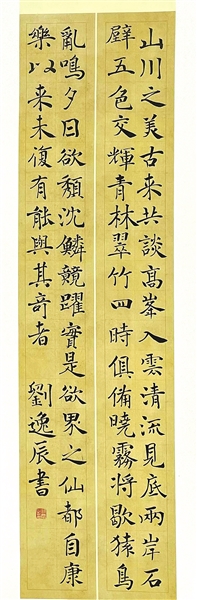 山川之美古来共談高峯入雲清流見底兩岸石
壁五色交輝青林翠竹四時俱備曉霧将歇猿鳥
亂鳴夕日欲頹沈鱗競躍實是欲界之仙都自康
樂以来未復有能與其奇者 劉逸辰書